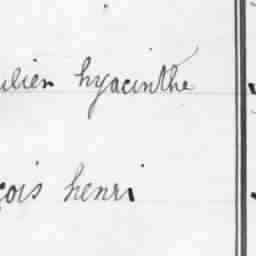 ulien hyacinthe
çois henri